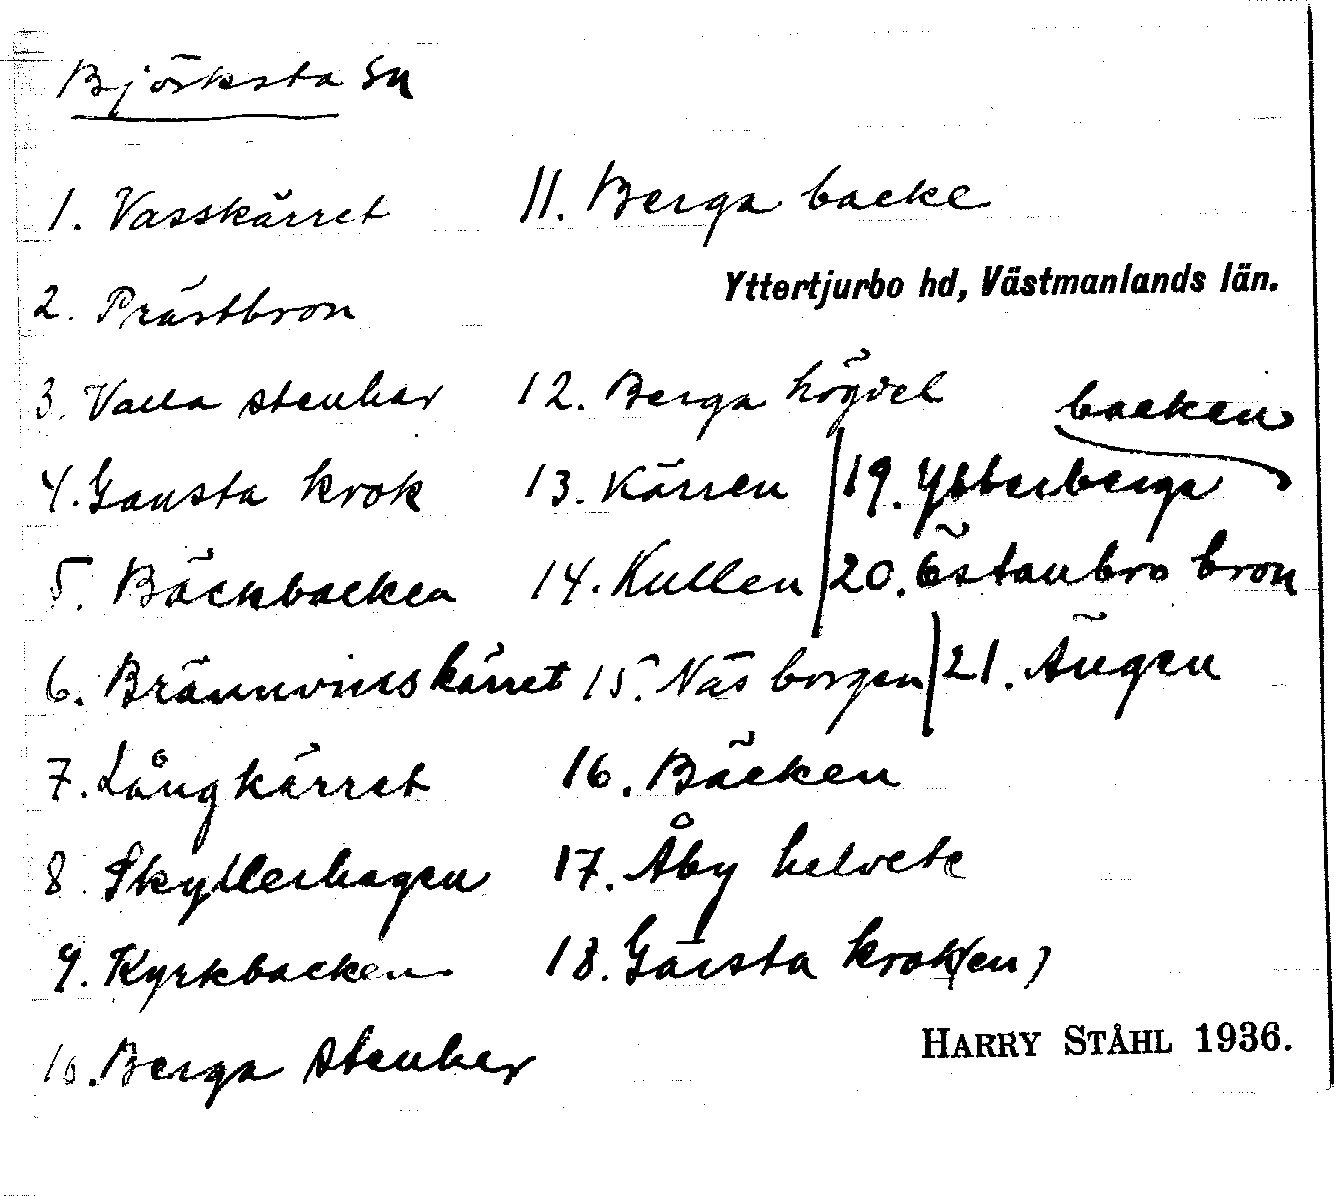 Björksta Sn
1. Vasskärret
11. Berga backe
Yttertjurbo hd, Västmanlands län.
2. Prästbron
3. Valla stenhar
12. Berga högdel
backen
4. Gausta krok
13. Kärren
19. Ytterberga
5. Bäckbacken
14. Kullen
20. Östanbro bron
6. Brännvinskärret
15. Näs borgen
21. Ängen
7. Långkärret
16. Bäcken
8. Skyllerhagen
17. Åby helvete
9. Kyrkbacken
18. Gärsta krok(en)
10. Berga stenhar
HARRY STÅHL 1936.